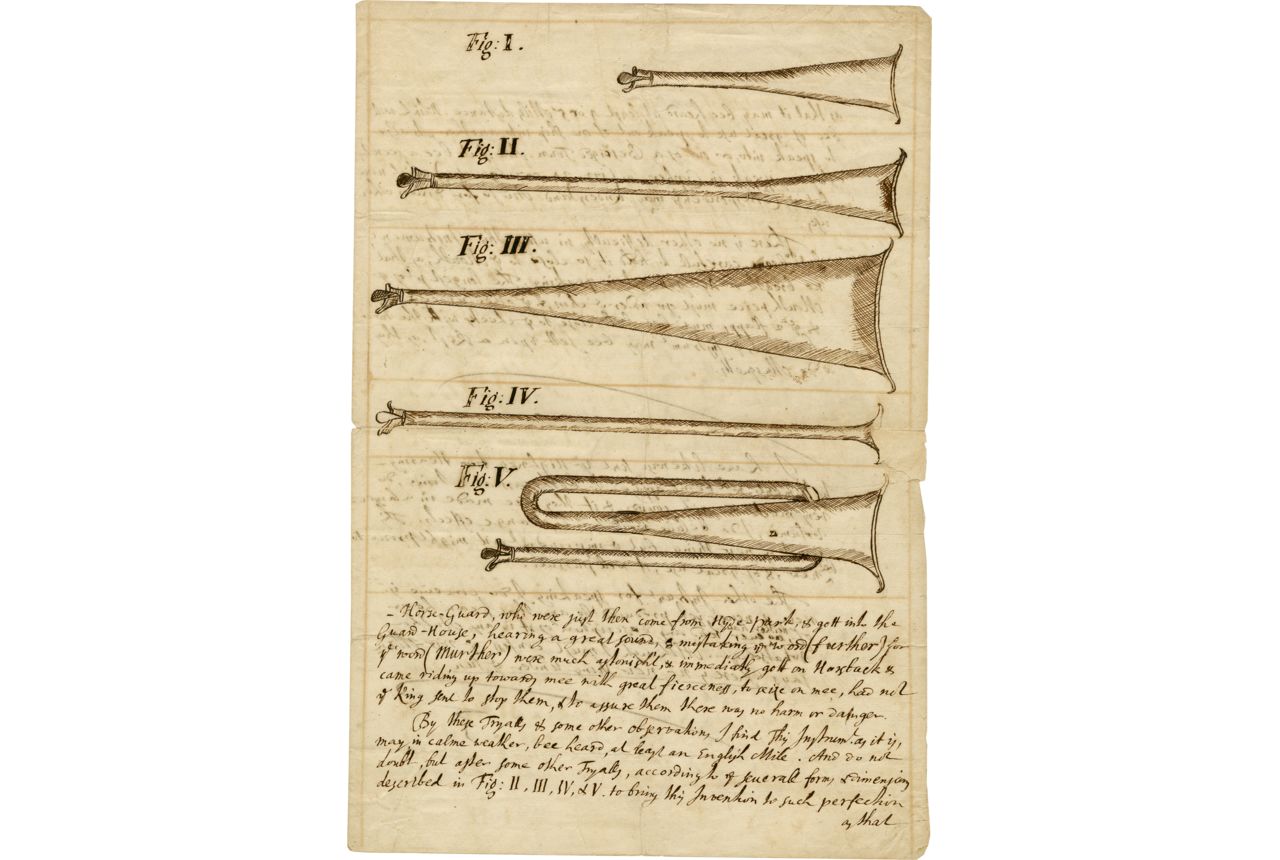 Fig: I.
Fig: II.
Fig: III.
Fig: IV.
Fig: V.
- Horse-Guard, who were just then come from Hyde park, & gott into the
Guard-House, hearing a great sound, & mistaking yᵉ word (further) for
yᵉ word (murther) were much astonisht, & immediatly gott on Horsback &
came riding up towards mee with great fierceness, to seize on mee, had not
yᵉ King sent to stop them, & to assure them there was no harm or danger.
By these Tryalls & some other observations I find this Instrumᵗ. as it is,
may in calme weather, bee heard, at least an English Mile. And do not
doubt, but after some other Tryalls, according to yᵉ severall forms & dimensions
described in Fig: II, III, IV, & V. to bring this Invention to such perfection
as that